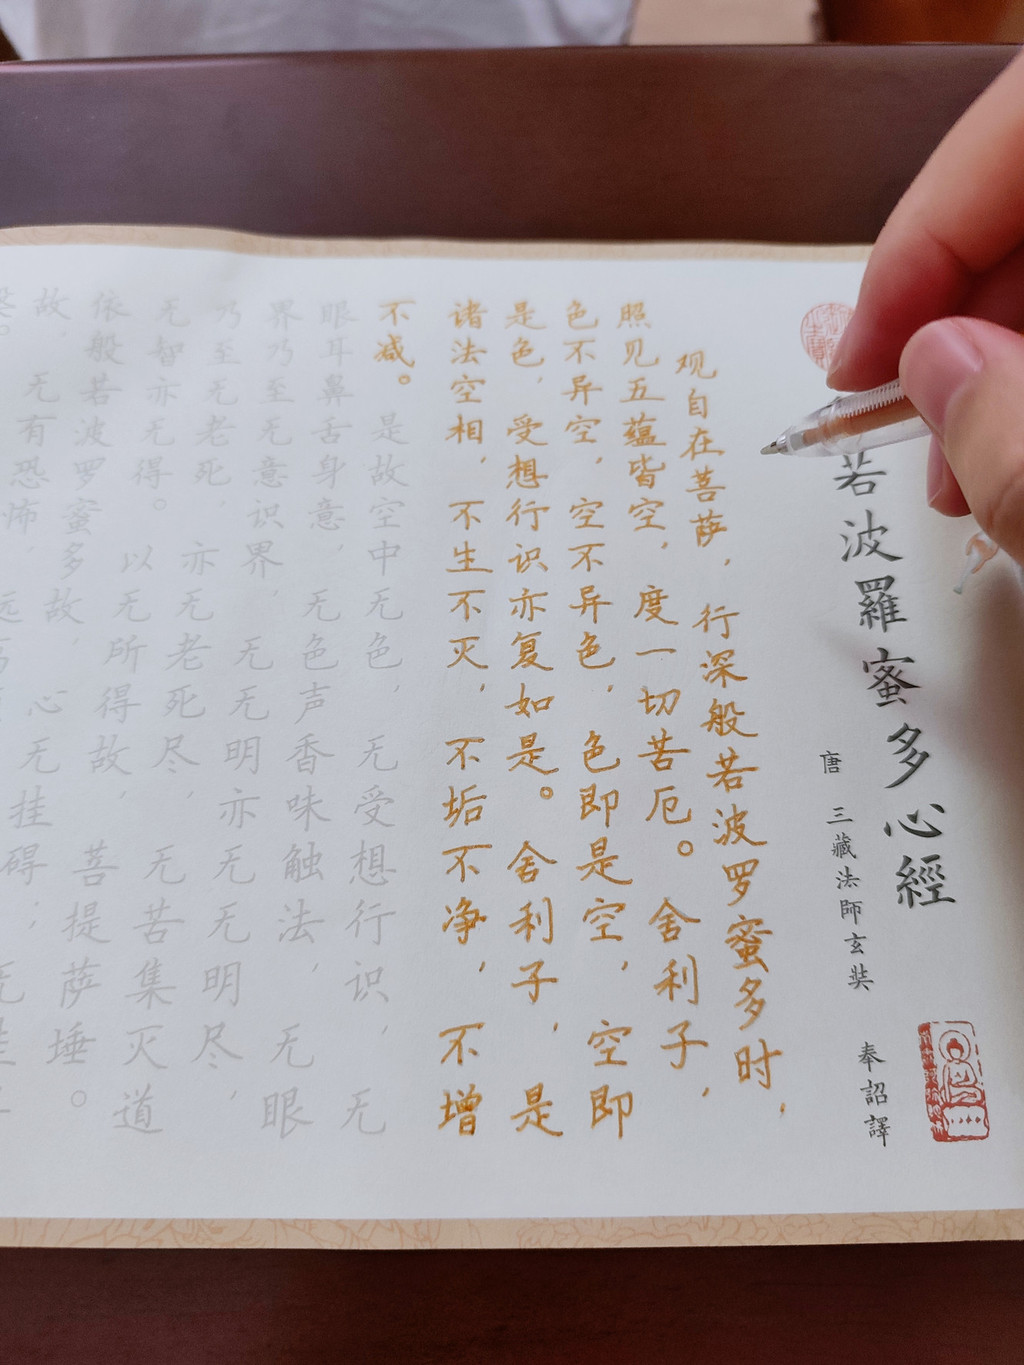 若波羅蜜多心經
唐 三藏法師玄奘 奉詔譯
观自在菩萨，行深般若波罗蜜多时，
照见五蕴皆空，度一切苦厄。舍利子，
色不异空，空不异色，色即是空，空即
是色，受想行识亦复如是。舍利子，是
诸法空相，不生不灭，不垢不净，不增
不减。是故空中无色，无受想行识，无
眼耳鼻舌身意，无色声香味触法，无眼
界乃至无意识界，无无明亦无无明尽，
乃至无老死，亦无老死尽，无苦集灭道
无智亦无得。以无所得故，菩提萨埵。
依般若波罗蜜多故，心无挂碍；无
故，无有恐怖，远